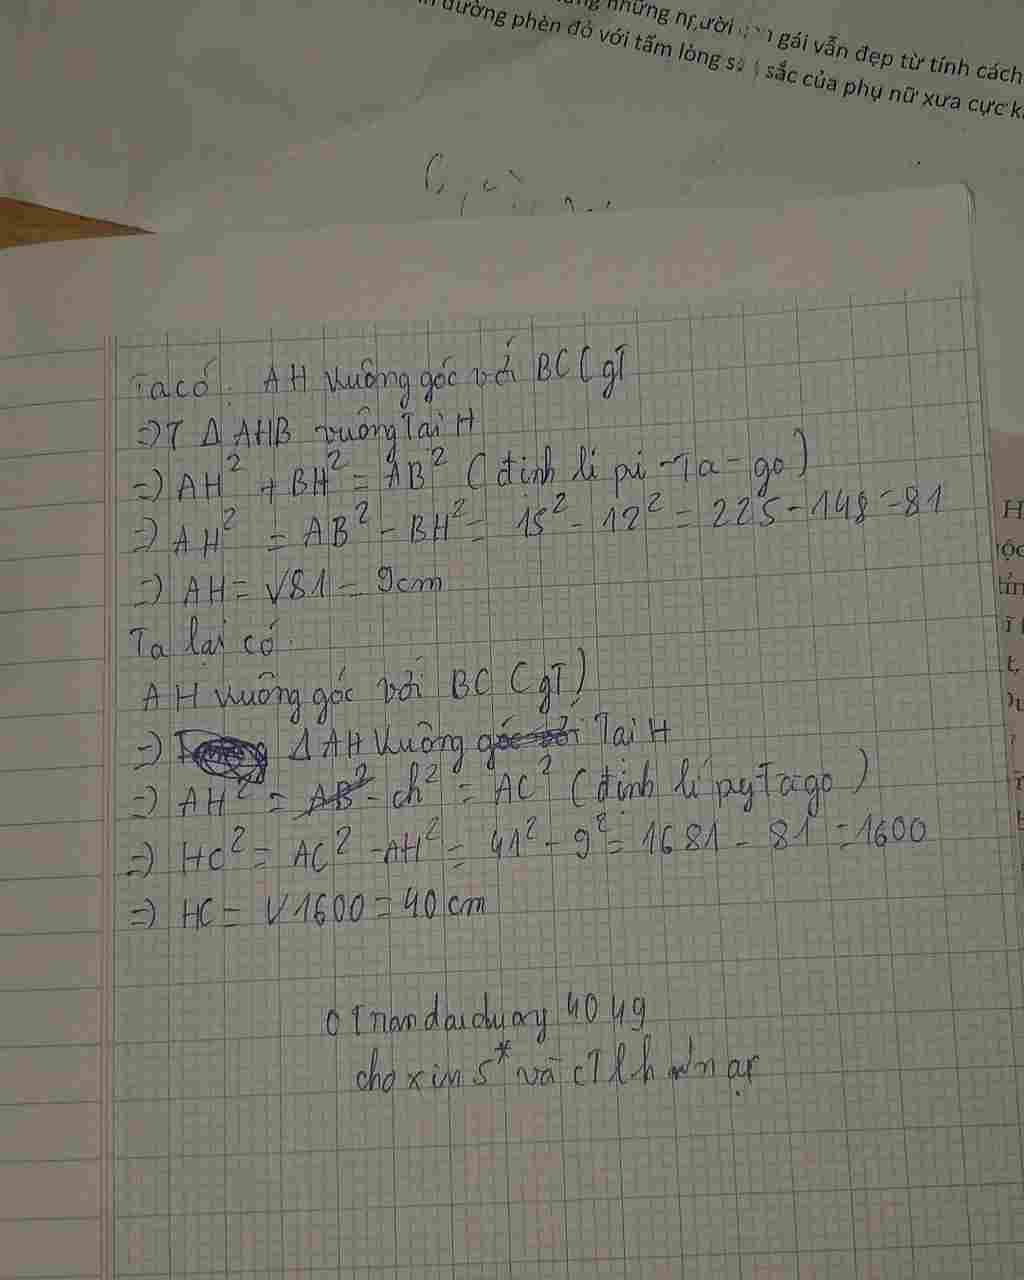 những người gái vẫn đẹp từ tính cách
đường phèn đỏ với tấm lòng sắc của phụ nữ xưa cực
Ta có: AH vuông góc với BC (gT
=> Δ AHB vuông Tại H
=> AH² + BH² = AB² (định lí pi-Ta-go)
=> AH² = AB² - BH² = 15² - 12² = 225 - 148 = 81
=> AH = √81 = 9cm
Ta lại có
AH vuông góc với BC (gT)
=> Δ AH vuông Tại H
=> AH² = - ch² = AC² (định lí pyTago)
=> HC² = AC² - AH² = 41² - 9² = 1681 - 81 = 1600
=> HC = √1600 = 40 cm
cho xin 5* và cTlhn ạ